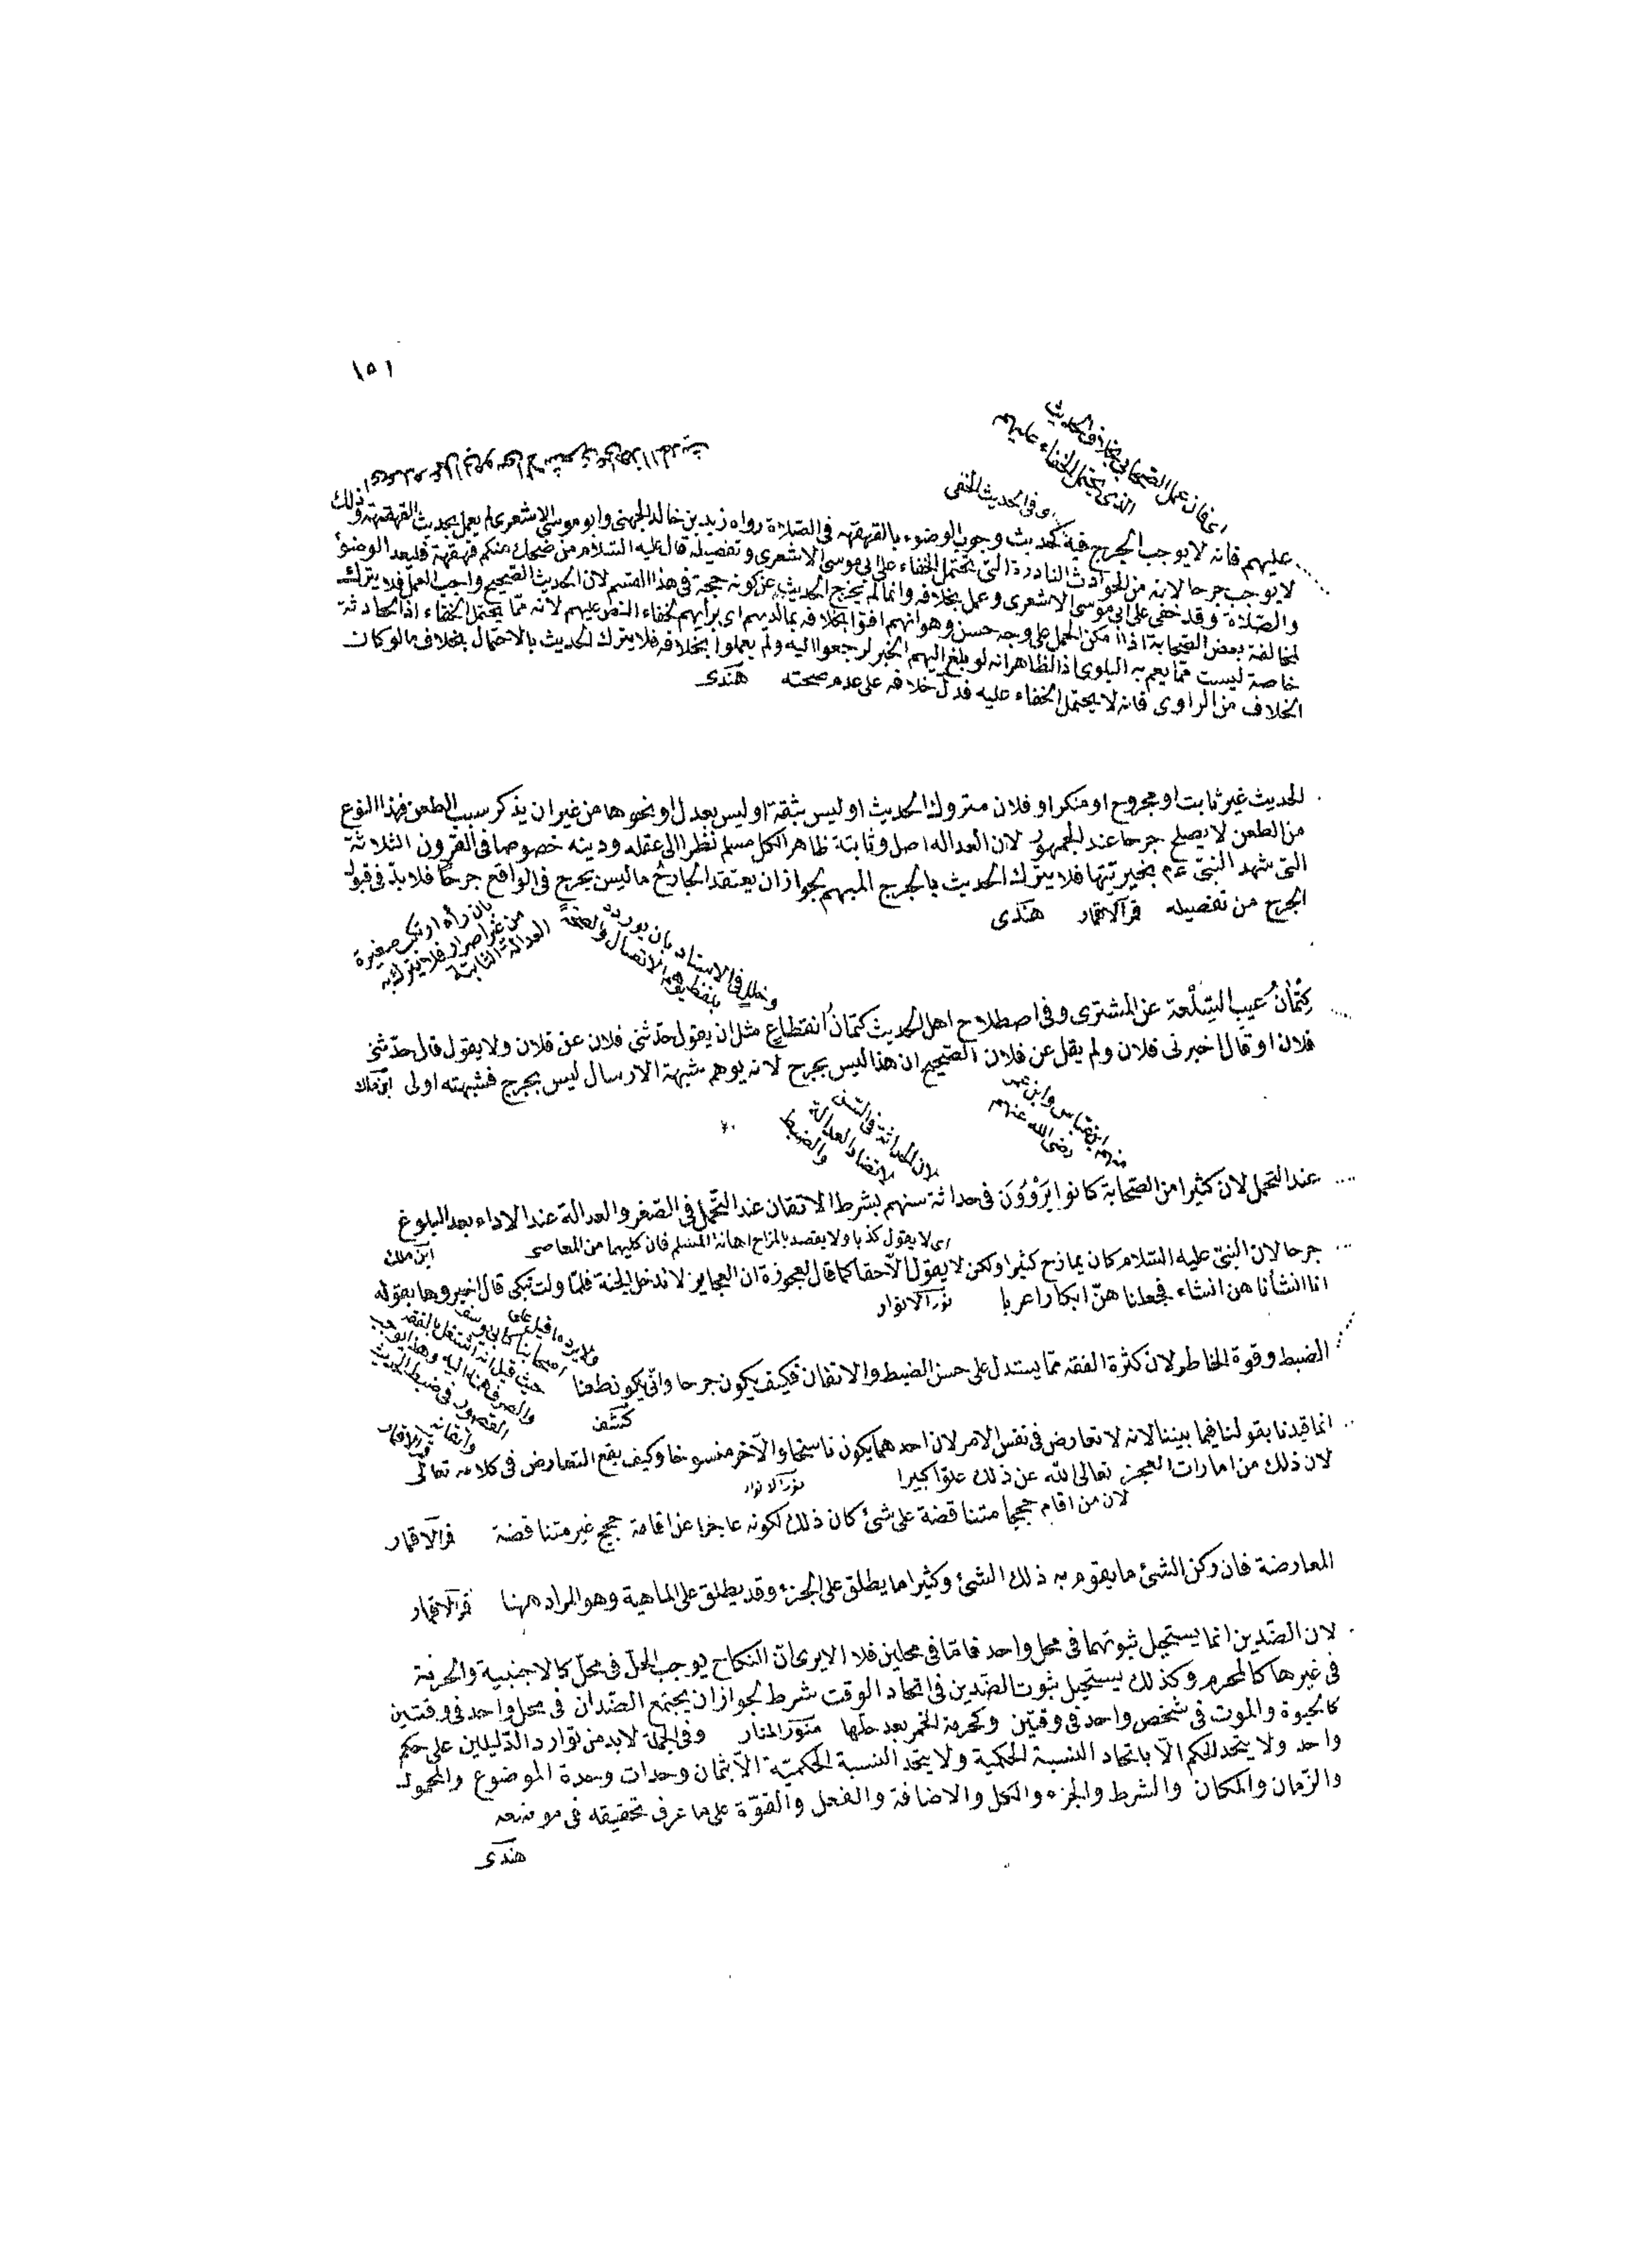 ١٥١
اى فان عمل الصحابى بخلاف الحديث
الذى يحتمل الخفاء عليهم
اى فى الحديث الخفى
عليهم فانه لا يوجب الجرح فيه كحديث وجوب الوضوء بالقهقهه فى الصلاة رواه زيد بن خالد الجهنى وابو موسى الاشعرى لم يعمل بحديث القهقهة وذلك
لا يوجب جرحا لانه من الحوادث النادرة التى يحتمل الخفاء على ابى موسى الاشعرى وتفصيله قال عليه السلام من ضحك منكم قهقهة فليعد الوضوء
والصلاة وقد خفى على ابى موسى الاشعرى وعمل بخلافه وانما لم يخرج الحديث عن كونه حجة فى هذا القسم لان الحديث الصحيح واجب العمل فلا يترك
لمخالفة بعض الصحابة اذا امكن الحمل على وجه حسن وهو انهم افتوا بخلافه بما لديهم اى برأيهم لخفاء النص عليهم لانه مما يحتمل الخفاء اذ الحادثة
خاصة ليست مما يعم به البلوى اذ الظاهر انه لو بلغ اليهم الخبر لرجعوا اليه ولم يعملوا بخلافه فلا يترك الحديث بالاحتمال بخلاف ما لو كان
الخلاف من الراوى فانه لا يحتمل الخفاء عليه فدل خلافه على عدم صحته هندى
الحديث غير ثابت او مجروح او منكر او فلان متروك الحديث او ليس بثقة او ليس بعدل او نحوها من غير ان يذكر سبب الطعن فهذا النوع
من الطعن لا يصلح جرحا عند الجمهور لان العدالة اصل وثابتة ظاهرا لكل مسلم نظرا الى عقله ودينه خصوصا فى القرون الثلاثة
التى شهد النبى عم بخيريتها فلا يترك الحديث بالجرح المبهم لجواز ان يعتقد الجارح ما ليس بجرح فى الواقع جرحا فلا بد فى قبول
الجرح من تفصيله قمر الاقمار هندى
بان رأه ارتكب صغيرة
من غير اصرار فلا يترك به
العدالة الثابتة
كتمان عيب السلعة عن المشترى وفى اصطلاح اهل الحديث كتمان انقطاع مثل ان يقول حدثنى فلان عن فلان ولا يقول قال حدثنى
فلان او قال اخبرنى فلان ولم يقل عن فلان الصحيح ان هذا ليس بجرح لانه يوهم شبهة الارسال ليس بجرح فشبهته اولى ابن ملك
منهم ابن عباس وابن عمر
رضى الله عنهم
والضبط
عند التحمل لان كثيرا من الصحابة كانوا يروون فى حداثة سنهم بشرط الاتقان عند التحمل فى الصغر والعدالة عند الاداء بعد البلوغ
ابن ملك
اى لا يقول كذبا ولا يقصد بالمزاح اهانة المسلم فان كليهما من المعاصى
جرحا لان النبى عليه السلام كان يمازح كثيرا ولكن لا يقول الا حقا كما قال لعجوزة ان العجايز لا تدخل الجنة فلما ولت تبكى قال اخبروها بقوله
انا انشأناهن انشاء فجعلناهن ابكارا عربا نور الانوار
ولا يرد ما قيل على
اصحابنا كابى يوسف
حيث قيل انه اشتغل بالفقه
والصرف همته اليه وهذا يوجب
القصور فى ضبط الحديث
واتقانه
قمر الاقمار
الضبط وقوة الخاطر لان كثرة الفقه مما يستدل على حسن الضبط والاتقان فكيف يكون جرحا وانى يكون طعنا
كشف
انما قيدنا بقولنا فيما بيننا لانه لا تعارض فى نفس الامر لان احدهما يكون ناسخا والآخر منسوخا وكيف يقع التعارض فى كلامه تعالى
لان ذلك من امارات العجز تعالى الله عن ذلك علوا كبيرا نور الانوار
لان من اقام حججا متناقضة على شئ كان ذلك لكونه عاجزا عن اقامة حجج غير متناقضة قمر الاقمار
المعارضة فان ركن الشئ ما يقوم به ذلك الشئ وكثيرا ما يطلق على الجزء وقد يطلق على الماهية وهو المراد ههنا قمر الاقمار
لان الضدين انما يستحيل ثبوتهما فى محل واحد فاما فى محلين فلا الا يرى ان النكاح يوجب الحل فى محل كالاجنبية والحرمة
فى غيرها كالمحرم وكذلك يستحيل ثبوت الضدين فى اتحاد الوقت شرط لجواز ان يجتمع الضدان فى محل واحد فى وقتين
كالحيوة والموت فى شخص واحد فى وقتين وكحرمة الخمر بعد حلها منور المنار وفى الجملة لا بد من توارد الدليلين على حكم
واحد ولا يتحد الحكم الا باتحاد النسبة الحكمية ولا يتحد النسبة الحكمية الا بثمان وحدات وحدة الموضوع والمحمول
والزمان والمكان والشرط والجزء والكل والاضافة والفعل والقوة على ما عرف تحقيقه فى موضعه
هندى